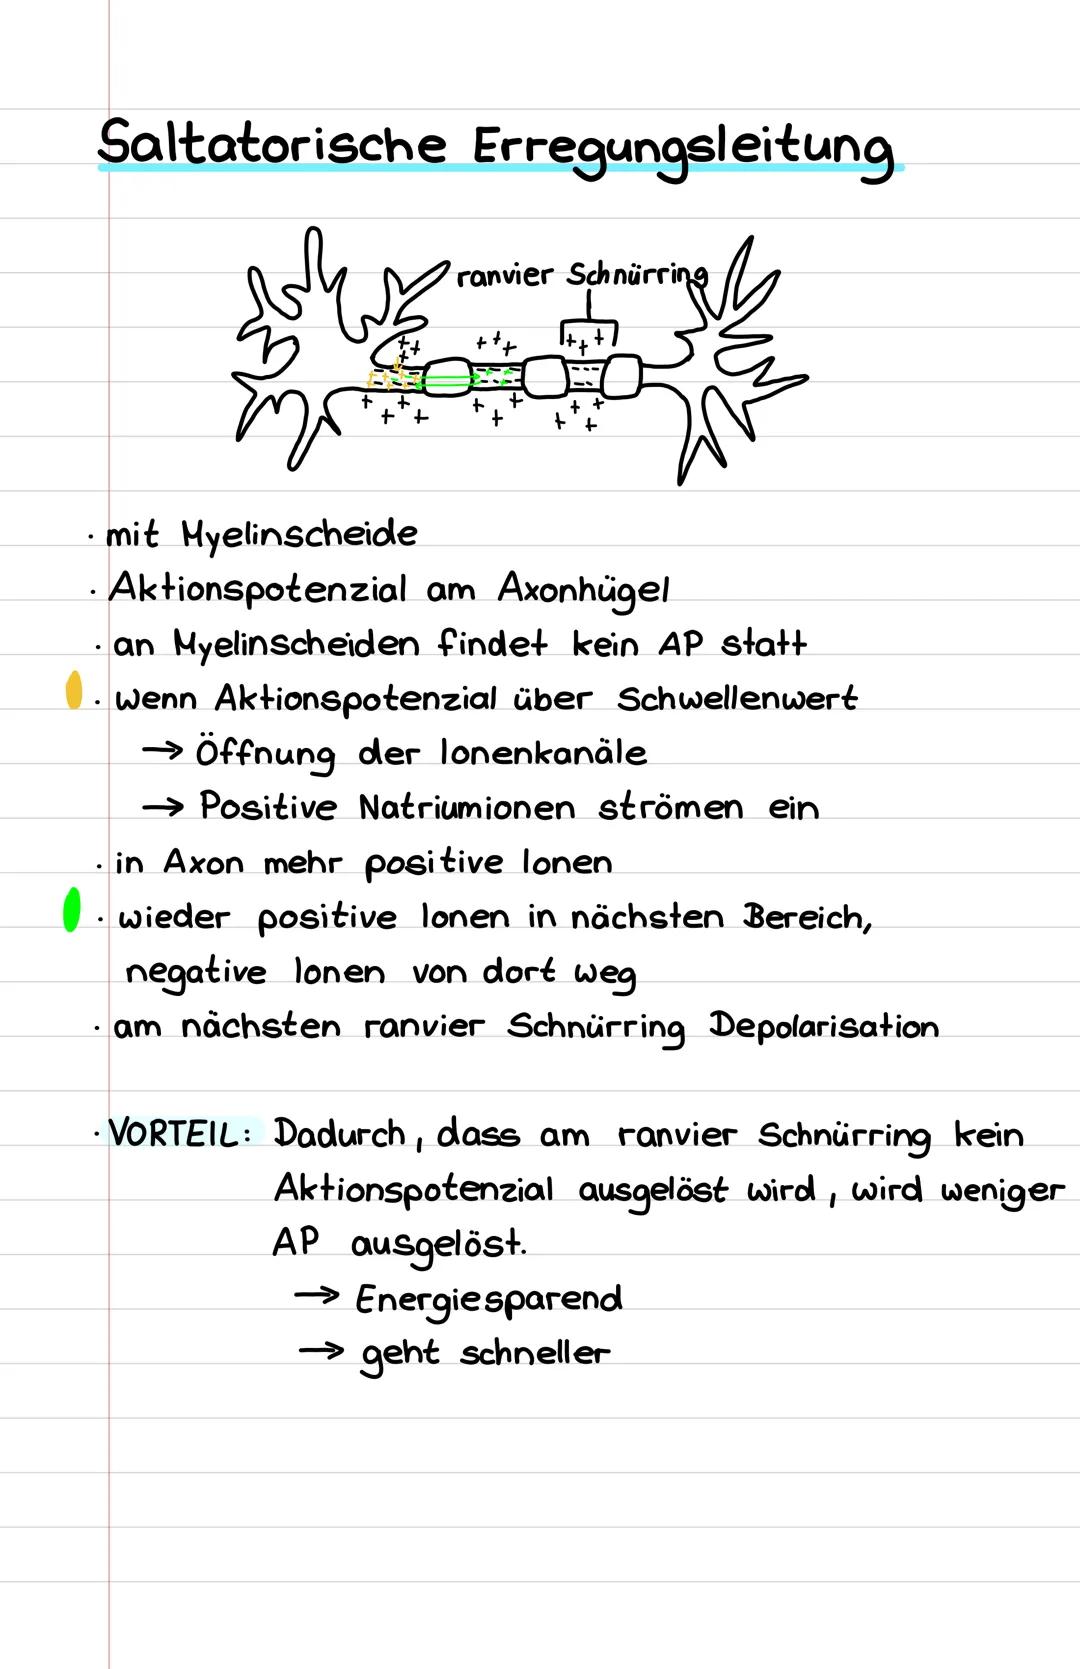 Saltatorische Erregungsleitung
ranvier Schnürring
· mit Myelinscheide
· Aktionspotenzial am Axonhügel
· an Myelinscheiden findet kein AP statt
· wenn Aktionspotenzial über Schwellenwert
→ Öffnung der Ionenkanäle
→ Positive Natriumionen strömen ein
· in Axon mehr positive Ionen
· wieder positive Ionen in nächsten Bereich,
negative Ionen von dort weg
· am nächsten ranvier Schnürring Depolarisation
· VORTEIL: Dadurch, dass am ranvier Schnürring kein
Aktionspotenzial ausgelöst wird, wird weniger
AP ausgelöst.
→ Energiesparend
→ geht schneller